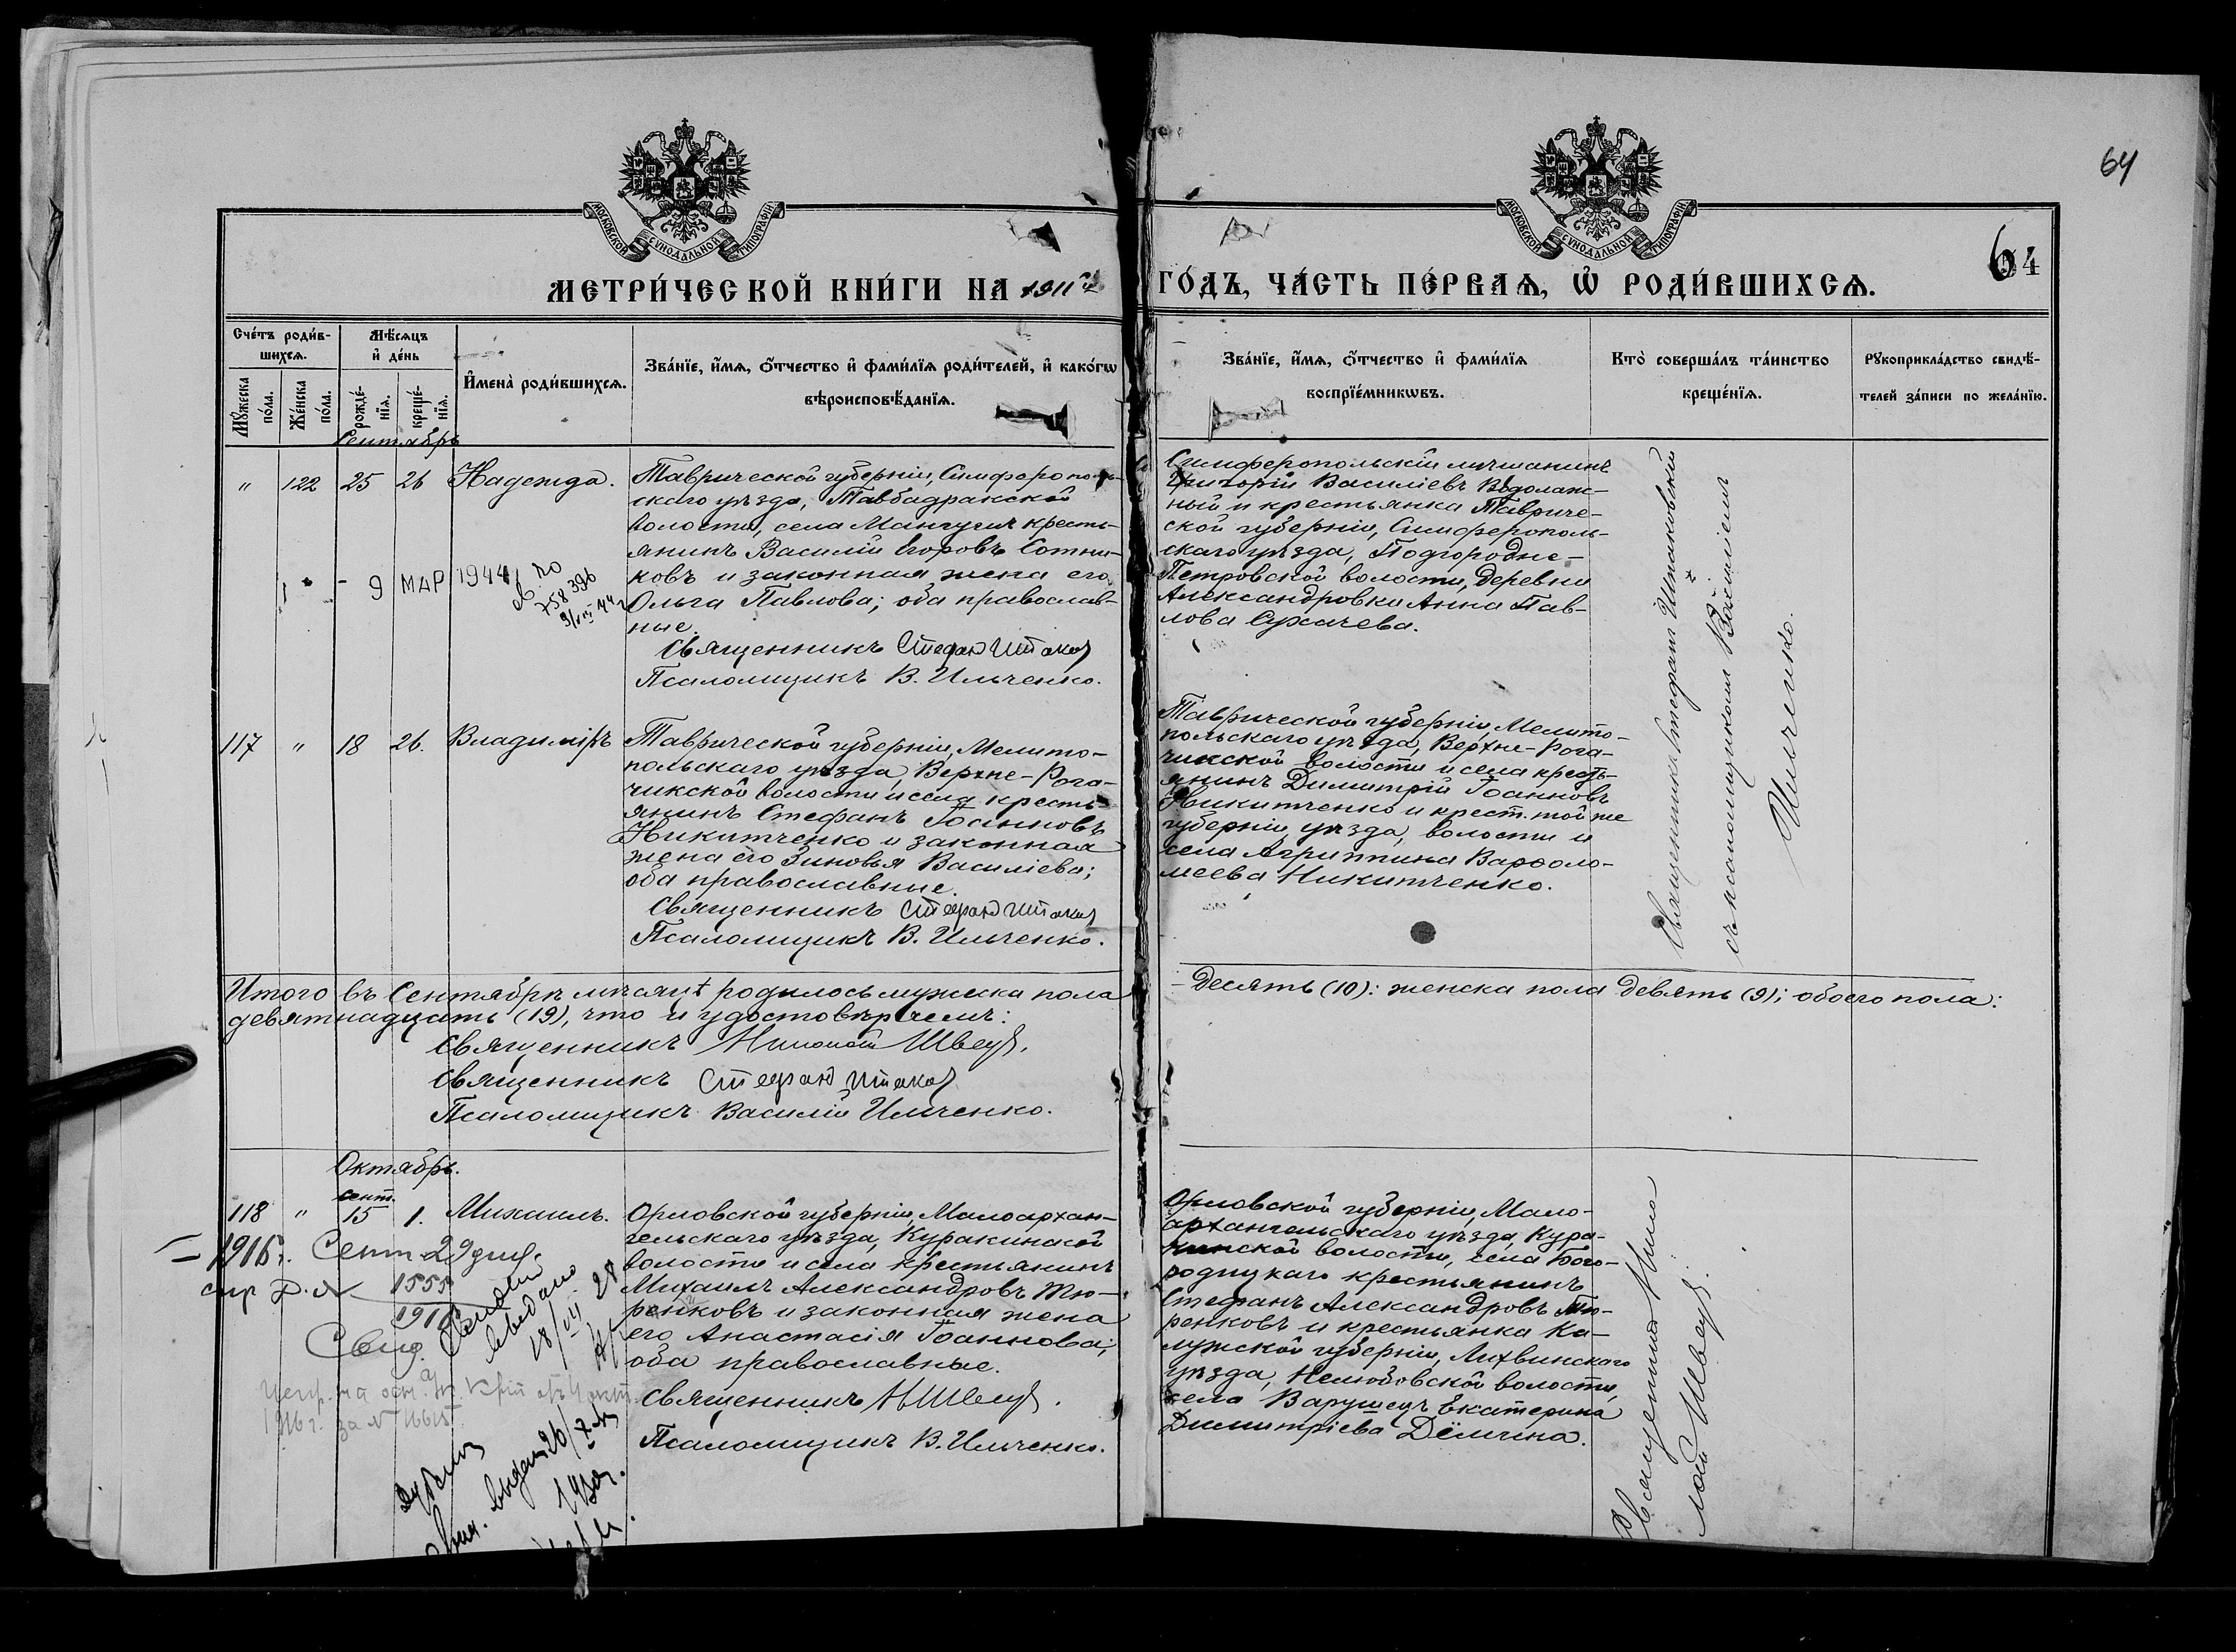 64
МОСКОВСКОЙ СѴНОДАЛЬНОЙ ТИПОГРАФІИ
МОСКОВСКОЙ СѴНОДАЛЬНОЙ ТИПОГРАФІИ
64
МЕТРИ́ЧЕСКОЙ КНИ́ГИ НА 1911й
ГО́ДЪ, ЧА́СТЬ ПЕ́РВАѦ, Ѡ҆ РОДИ́ВШИХСѦ.
Сче́тъ роди́в-
шихсѧ.
Мꙋ́жеска
по́ла.
Же́нска
по́ла.
Мѣ́сѧцъ
и҆ де́нь
рожде́-
нїѧ.
креще́-
нїѧ.
И҆мена̀ роди́вшихсѧ.
Зва́нїе, и҆́мѧ, ѻ҆́тчество и҆ фами́лїѧ роди́телей, и҆ како́гѡ
вѣроисповѣ́данїѧ.
Зва́нїе, и҆́мѧ, ѻ҆́тчество и҆ фами́лїѧ
воспрїе́мникѡвъ.
Кто̀ соверша́лъ та́инство
креще́нїѧ.
Рꙋкоприкла́дство свидѣ́-
телей за́писи по жела́нїю.
Сентябрь
" 122 25 26 Надежда.
Таврической губерніи, Симферополь-
скаго уѣзда, Тавбадракской
волости, села Мангушъ кресть-
янинъ Василій Егоровъ Сотни-
ковъ и законная жена его
Ольга Павлова; оба православ-
ные.
Священникъ Стефан
Псаломщикъ В. Ильченко.
9 МАР 1944
758396
Симферопольскій мѣщанинъ
Григорій Василіевъ Водолаж-
ный и крестьянка Тавриче-
ской губерніи, Симферополь-
скаго уѣзда, Подгородне-
Петровской волости, деревни
Александровки Анна Пав-
лова Сухачева.
Священникъ Стефанъ
съ псаломщикомъ Василіемъ
Ильченко.
117 " 18 26. Владиміръ
Таврической губерніи, Мелито-
польскаго уѣзда, Верхне-Рога-
чикской волости и села кресть-
янинъ Стефанъ Іоанновъ
Никитченко и законная
жена его Зиновья Василіева;
оба православные.
Священникъ Стефан
Псаломщикъ В. Ильченко.
Таврической губерніи, Мелито-
польскаго уѣзда, Верхне-Рога-
чикской волости и села кресть-
янинъ Димитрій Іоанновъ
Никитченко и крест. той же
губерніи, уѣзда, волости и
села Агриппина Варфоло-
меева Никитченко.
Итого въ Сентябрѣ мѣсяцѣ родилось мужеска пола
- Десять (10): женска пола девять (9); обоего пола:
девятнадцать (19), что и удостовѣряемъ:
Священникъ Николай Швецъ.
Священникъ Стефан
Псаломщикъ Василій Ильченко.
Октябрь.
сент.
118 " 15 1. Михаилъ.
Орловской губерніи, Малоархан-
гельскаго уѣзда, Куракинской
волости и села крестьянинъ
Михаилъ Александровъ Тю-
ренковъ и законная жена
его Анастасія Іоаннова;
оба православные.
Священникъ Н Швецъ.
Псаломщикъ В. Ильченко.
1916г. Сент 29
1916
Свид.
Орловской губерніи, Мало-
архангельскаго уѣзда, Кура-
кинской волости, села Бого-
родицкаго крестьянинъ
Стефанъ Александровъ Тю-
ренковъ и крестьянка Ка-
лужской губерніи, Лихвинскаго
уѣзда, Нелюбовской волости,
села Варушицъ Екатерина
Димитріева Дёмчина.
Священникъ Нико
лай Швецъ.